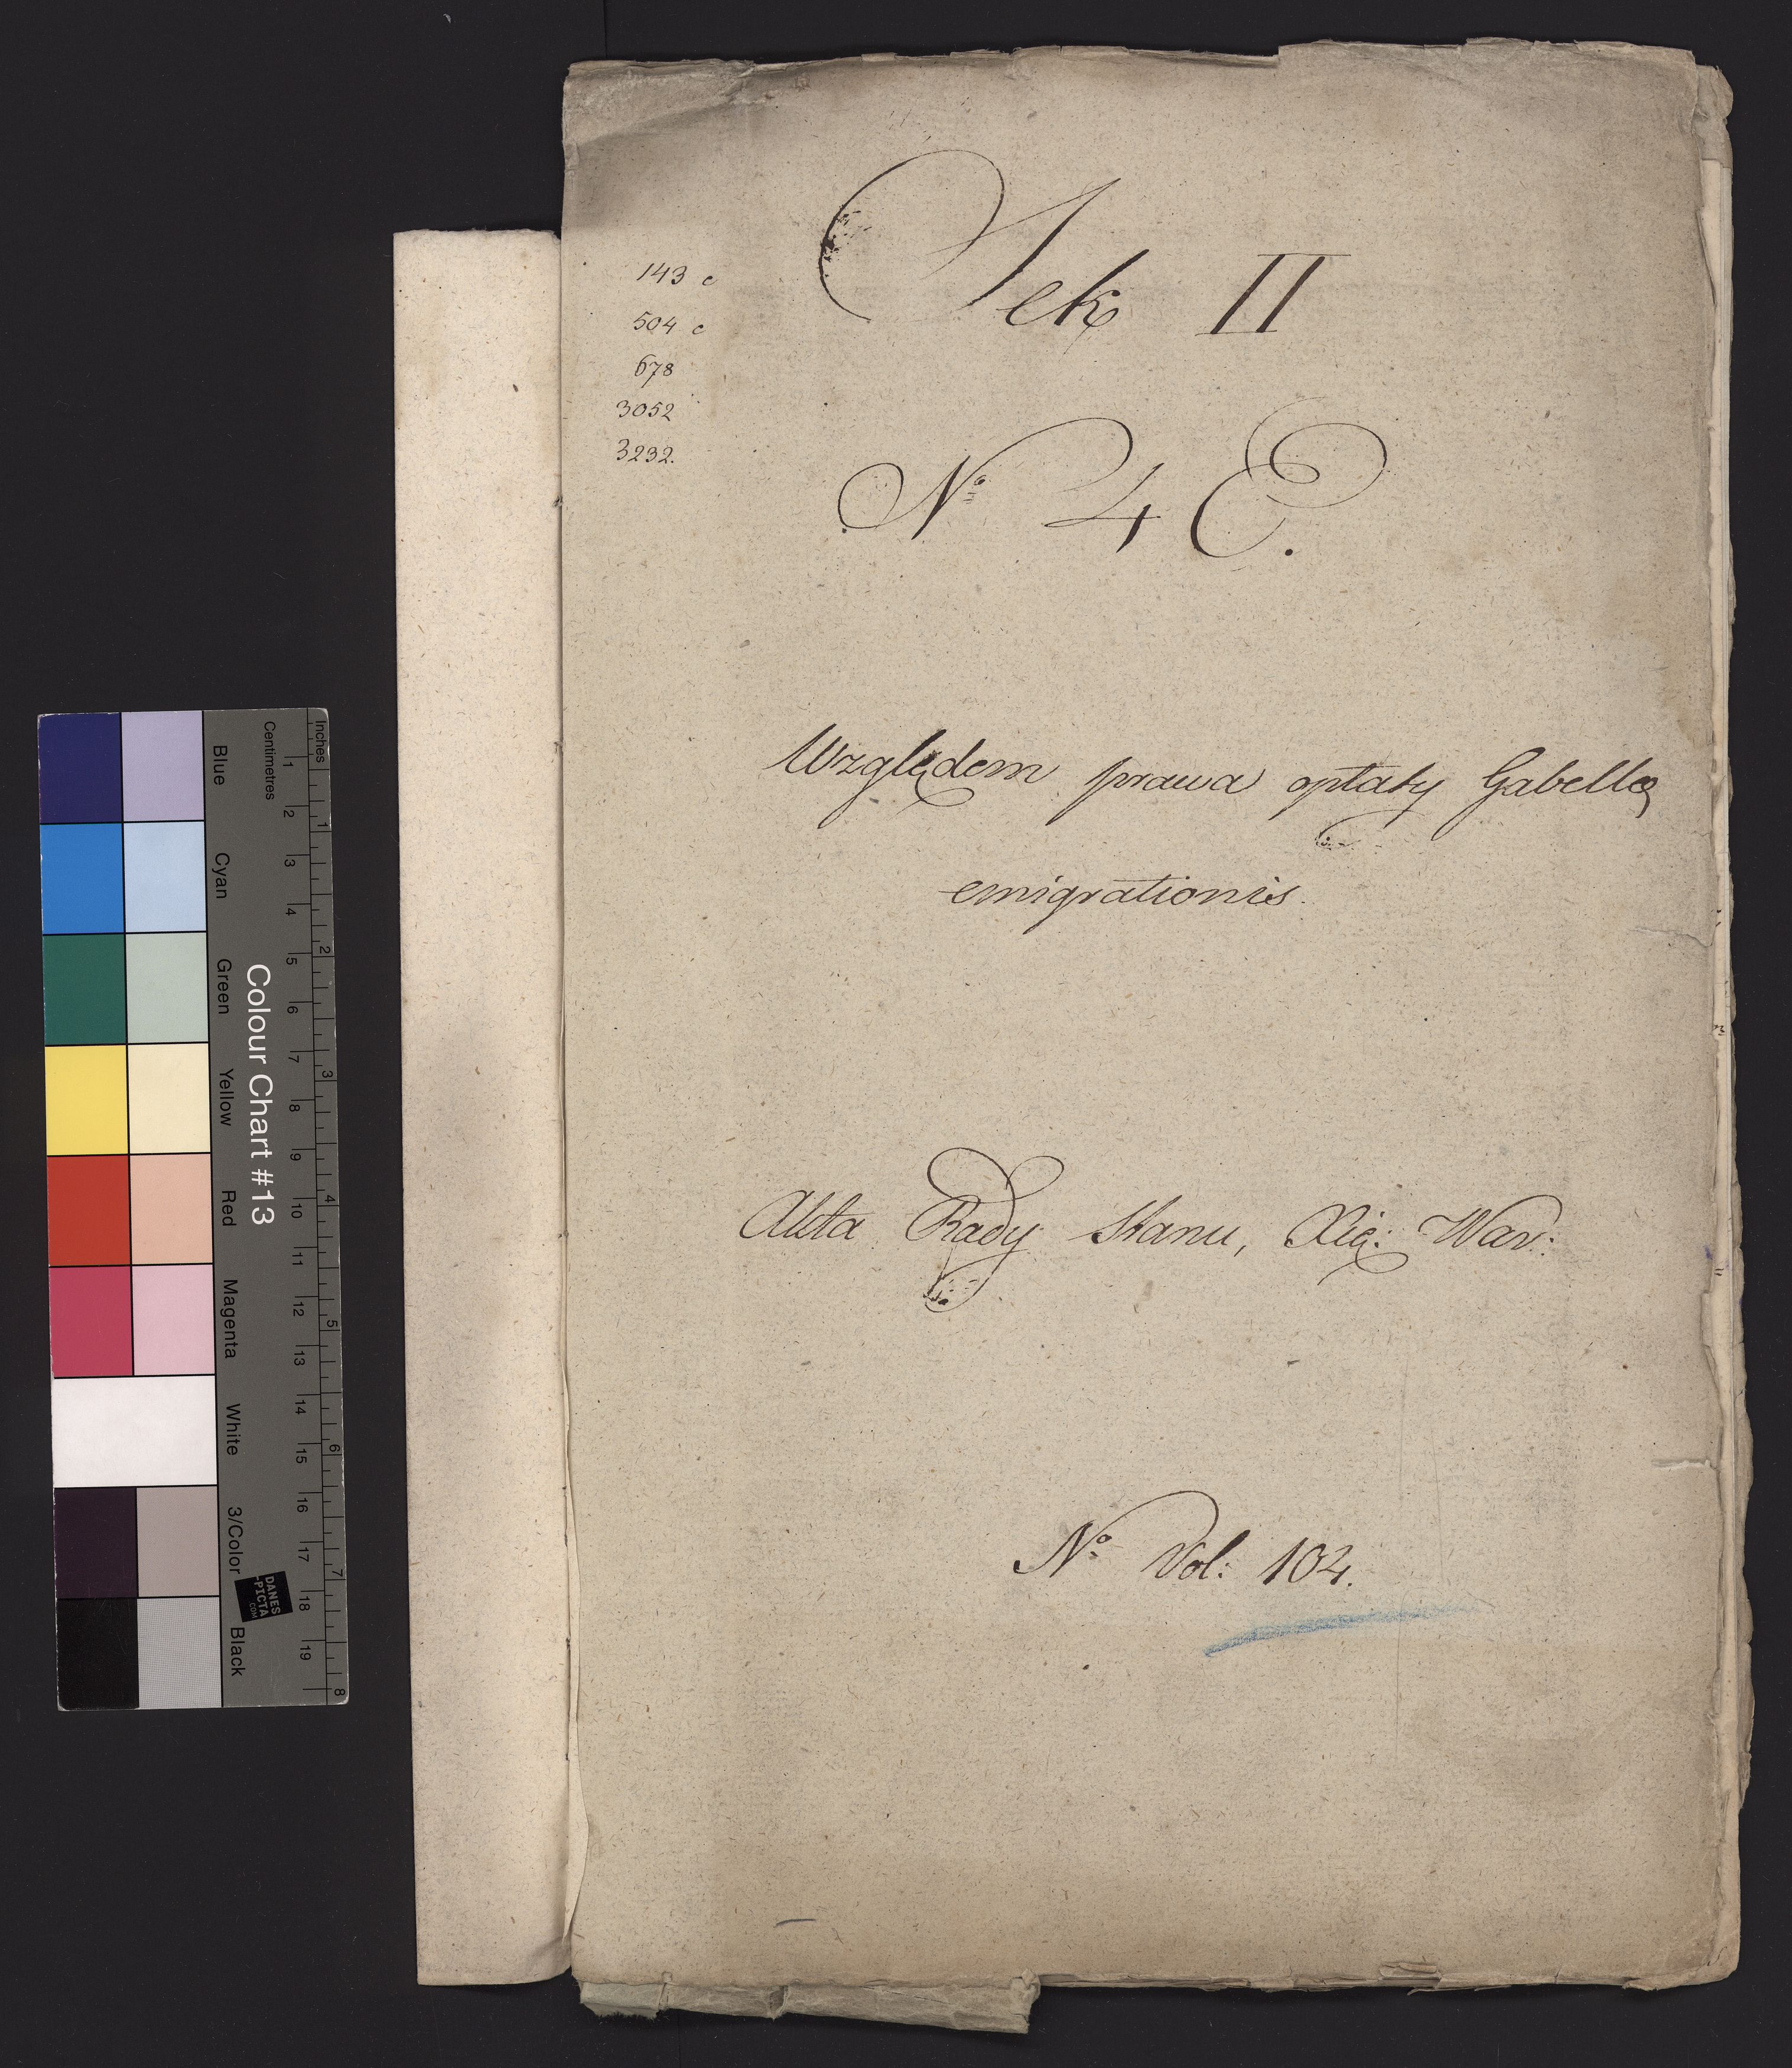 143 c
504 c
678
3052
3232.
Sek II
Nº 4 E.
Względem prawa opłaty Gabellæ
emigrationis.
Akta Rady Stanu, Xię: War:
Nº Vol: 104.
Inches
Centimetres
Colour Chart #13
Blue
Cyan
Green
Yellow
Red
Magenta
White
3/Color
Black
1 2 3 4 5 6 7 8 9 10 11 12 13 14 15 16 17 18 19
1 2 3 4 5 6 7 8
DANES
-PICTA
.COM